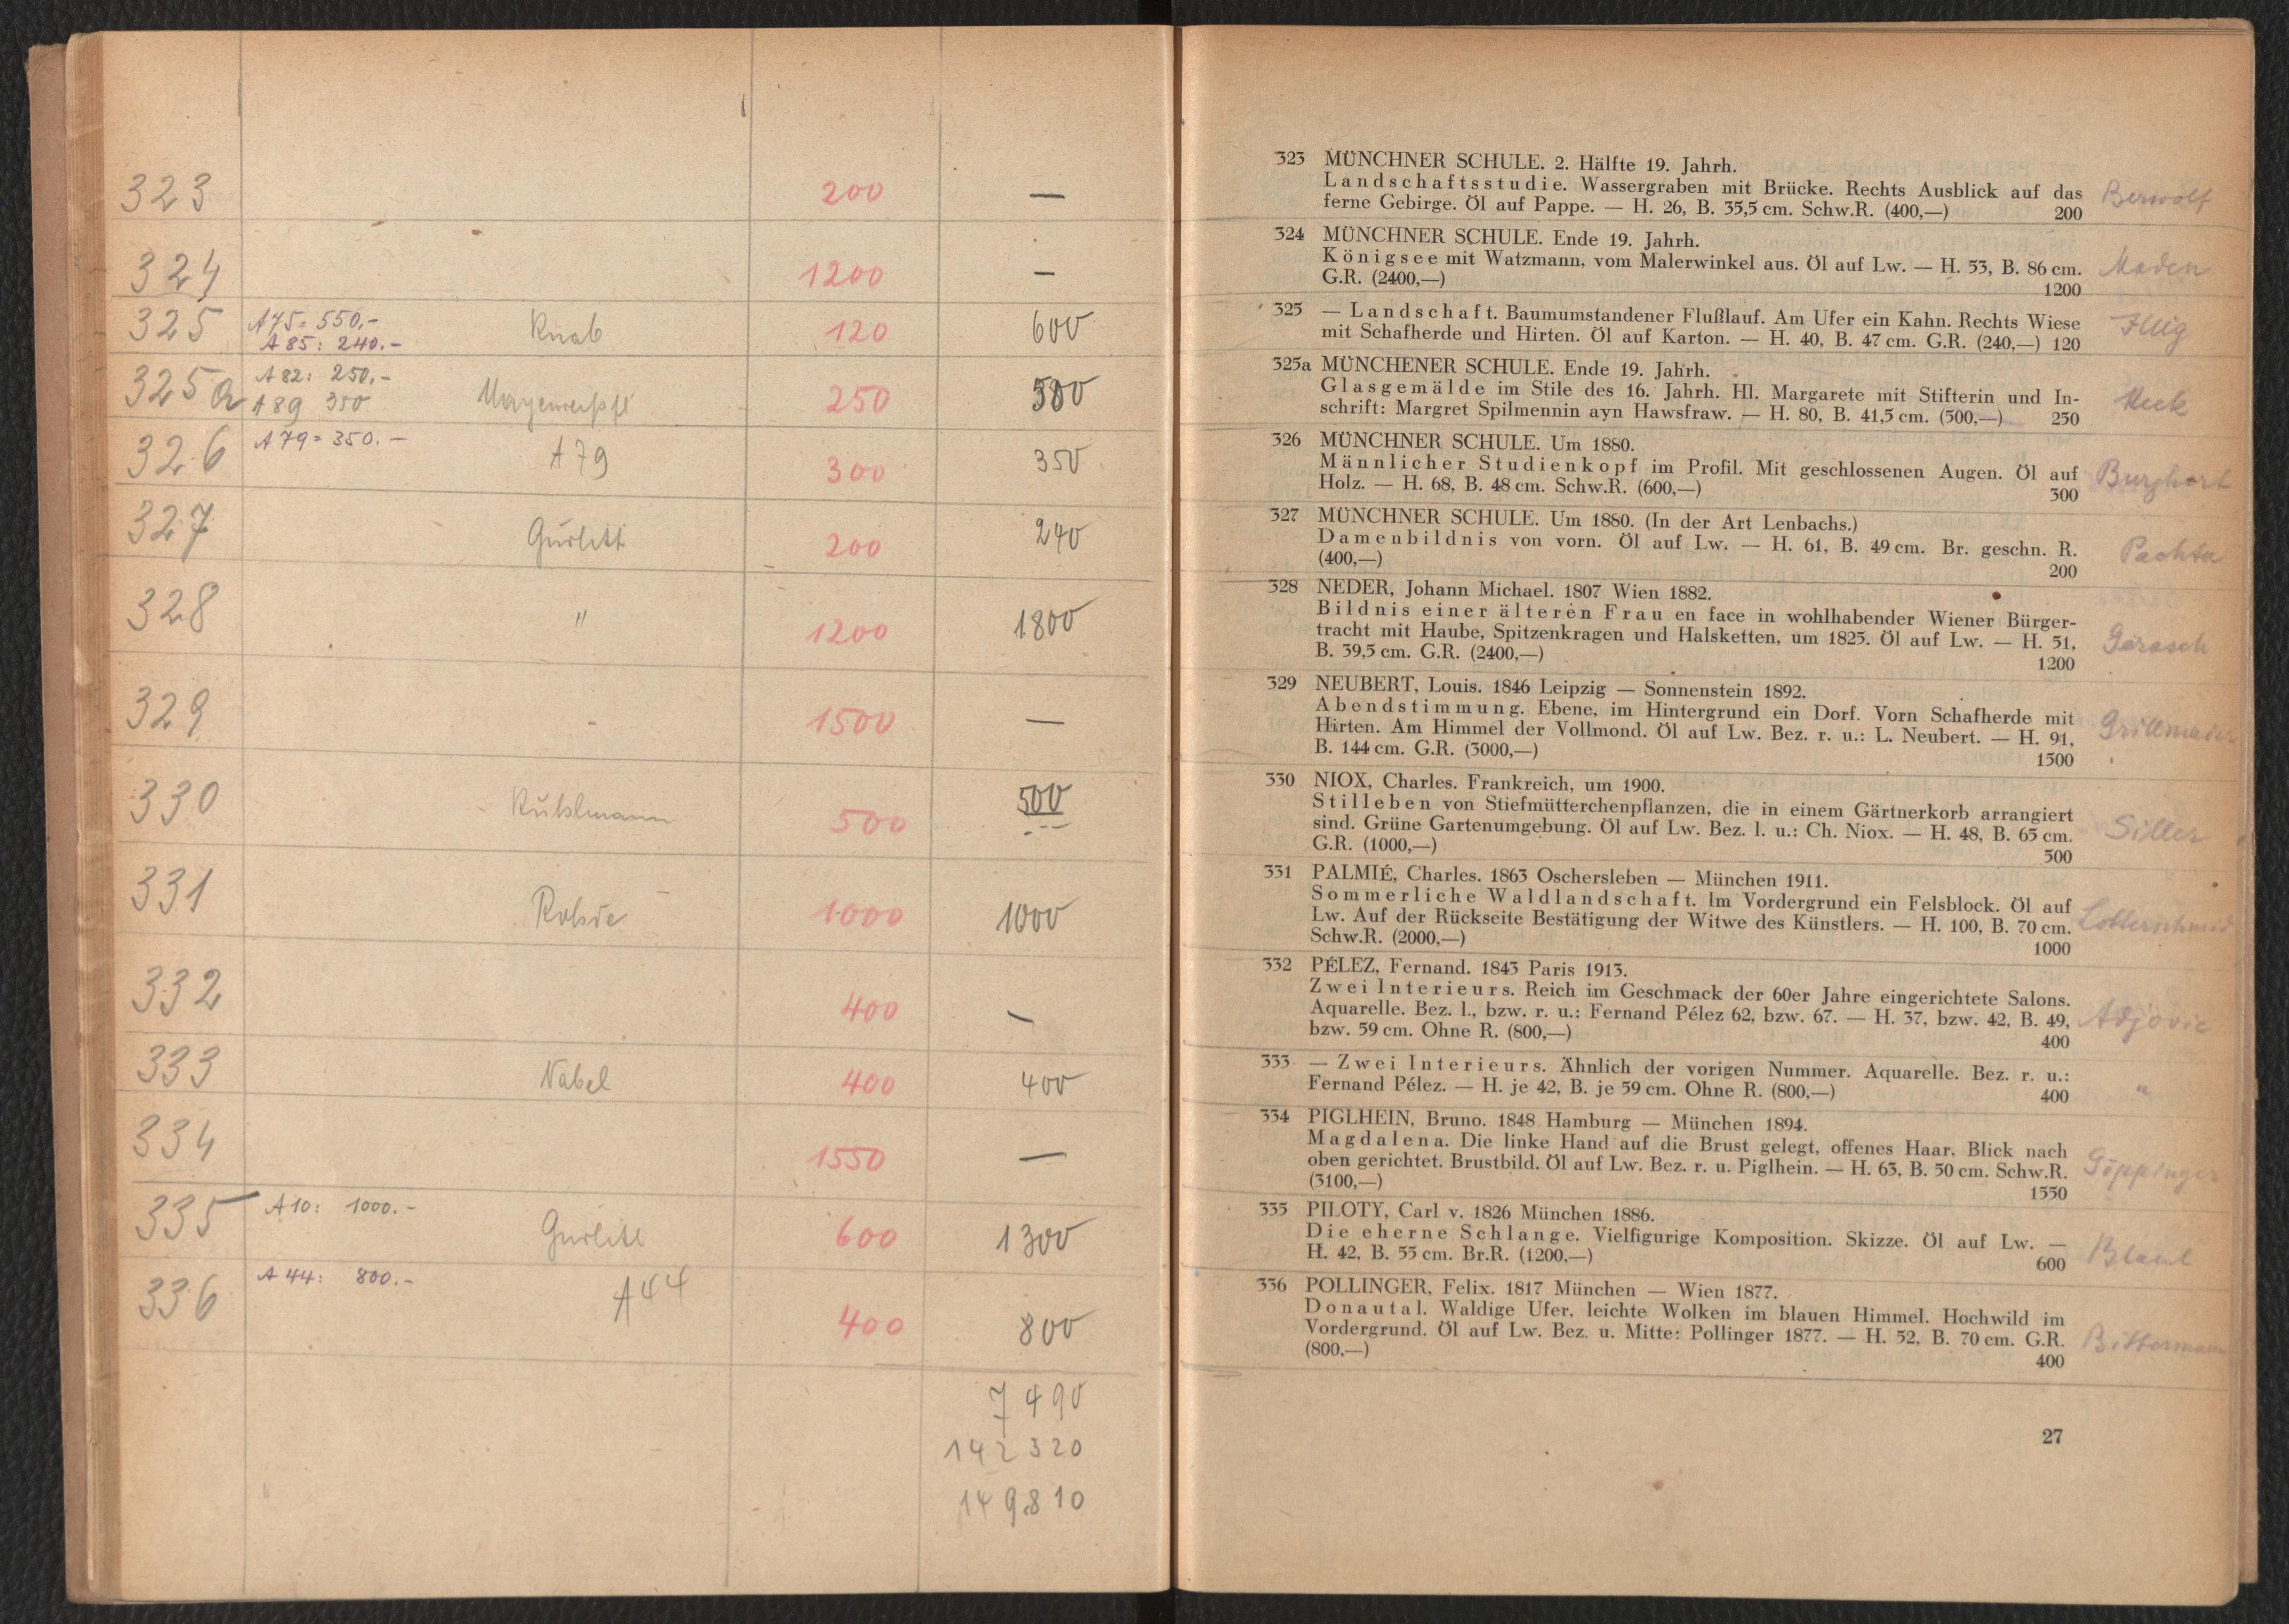 323 200 —
324 1200 —
325 A75: 550.- Knab 120 600
A 85: 240.-
325a A 82: 250.- 250 500
A 89 350
326 A 79 = 350.- A79 300 350
327 Gurlitt 200 240
328 " 1200 1800
329 - 1500 —
330 Kuhlmann 500 500
331 Rohde 1000 1000
332 400 —
333 Nabel 400 400
334 1550 —
335 A 10: 1000.- Gurlitt 600 1300
336 A 44: 800.- A44 400 800
7490
142320
149810
323 MÜNCHNER SCHULE. 2. Hälfte 19. Jahrh.
Landschaftsstudie. Wassergraben mit Brücke. Rechts Ausblick auf das Berwolf
ferne Gebirge. Öl auf Pappe. — H. 26, B. 35,5 cm. Schw.R. (400,—) 200
324 MÜNCHNER SCHULE. Ende 19. Jahrh.
Königsee mit Watzmann, vom Malerwinkel aus. Öl auf Lw. — H. 53, B. 86 cm. Moden
G.R. (2400,—) 1200
325 — Landschaft. Baumumstandener Flußlauf. Am Ufer ein Kahn. Rechts Wiese Illig
mit Schafherde und Hirten. Öl auf Karton. — H. 40, B. 47 cm. G.R. (240,—) 120
325a MÜNCHENER SCHULE. Ende 19. Jahrh.
Glasgemälde im Stile des 16. Jahrh. Hl. Margarete mit Stifterin und In-
schrift: Margret Spilmennin ayn Hawsfraw. — H. 80, B. 41,5 cm. (500,—) 250
326 MÜNCHNER SCHULE. Um 1880.
Männlicher Studienkopf im Profil. Mit geschlossenen Augen. Öl auf Burghart
Holz. — H. 68, B. 48 cm. Schw.R. (600,—) 300
327 MÜNCHNER SCHULE. Um 1880. (In der Art Lenbachs.)
Damenbildnis von vorn. Öl auf Lw. — H. 61, B. 49 cm. Br. geschn. R. Pachta
(400,—) 200
328 NEDER, Johann Michael. 1807 Wien 1882.
Bildnis einer älteren Frau en face in wohlhabender Wiener Bürger-
tracht mit Haube, Spitzenkragen und Halsketten, um 1825. Öl auf Lw. — H. 51, Gerasch
B. 39,5 cm. G.R. (2400,—) 1200
329 NEUBERT, Louis. 1846 Leipzig — Sonnenstein 1892.
Abendstimmung. Ebene, im Hintergrund ein Dorf. Vorn Schafherde mit Grillmaier
Hirten. Am Himmel der Vollmond. Öl auf Lw. Bez. r. u.: L. Neubert. — H. 91,
B. 144 cm. G.R. (3000,—) 1500
330 NIOX, Charles. Frankreich, um 1900.
Stilleben von Stiefmütterchenpflanzen, die in einem Gärtnerkorb arrangiert
sind. Grüne Gartenumgebung. Öl auf Lw. Bez. l. u.: Ch. Niox. — H. 48, B. 65 cm. Siller
G.R. (1000,—) 500
331 PALMIÉ, Charles. 1863 Oschersleben — München 1911.
Sommerliche Waldlandschaft. Im Vordergrund ein Felsblock. Öl auf
Lw. Auf der Rückseite Bestätigung der Witwe des Künstlers. — H. 100, B. 70 cm.
Schw.R. (2000,—) 1000
332 PÉLEZ, Fernand. 1843 Paris 1913.
Zwei Interieurs. Reich im Geschmack der 60er Jahre eingerichtete Salons.
Aquarelle. Bez. l., bzw. r. u.: Fernand Pélez 62, bzw. 67. — H. 37, bzw. 42, B. 49, Adjovic
bzw. 59 cm. Ohne R. (800,—) 400
333 — Zwei Interieurs. Ähnlich der vorigen Nummer. Aquarelle. Bez. r. u.: "
Fernand Pélez. — H. je 42, B. je 59 cm. Ohne R. (800,—) 400
334 PIGLHEIN, Bruno. 1848 Hamburg — München 1894.
Magdalena. Die linke Hand auf die Brust gelegt, offenes Haar. Blick nach
oben gerichtet. Brustbild. Öl auf Lw. Bez. r. u. Piglhein. — H. 63, B. 50 cm. Schw.R. Göppinger
(3100,—) 1550
335 PILOTY, Carl v. 1826 München 1886.
Die eherne Schlange. Vielfigurige Komposition. Skizze. Öl auf Lw. —
H. 42, B. 55 cm. Br.R. (1200,—) 600
336 POLLINGER, Felix. 1817 München — Wien 1877.
Donautal. Waldige Ufer, leichte Wolken im blauen Himmel. Hochwild im
Vordergrund. Öl auf Lw. Bez. u. Mitte: Pollinger 1877. — H. 52, B. 70 cm. G.R. Bittermann
(800,—) 400
27